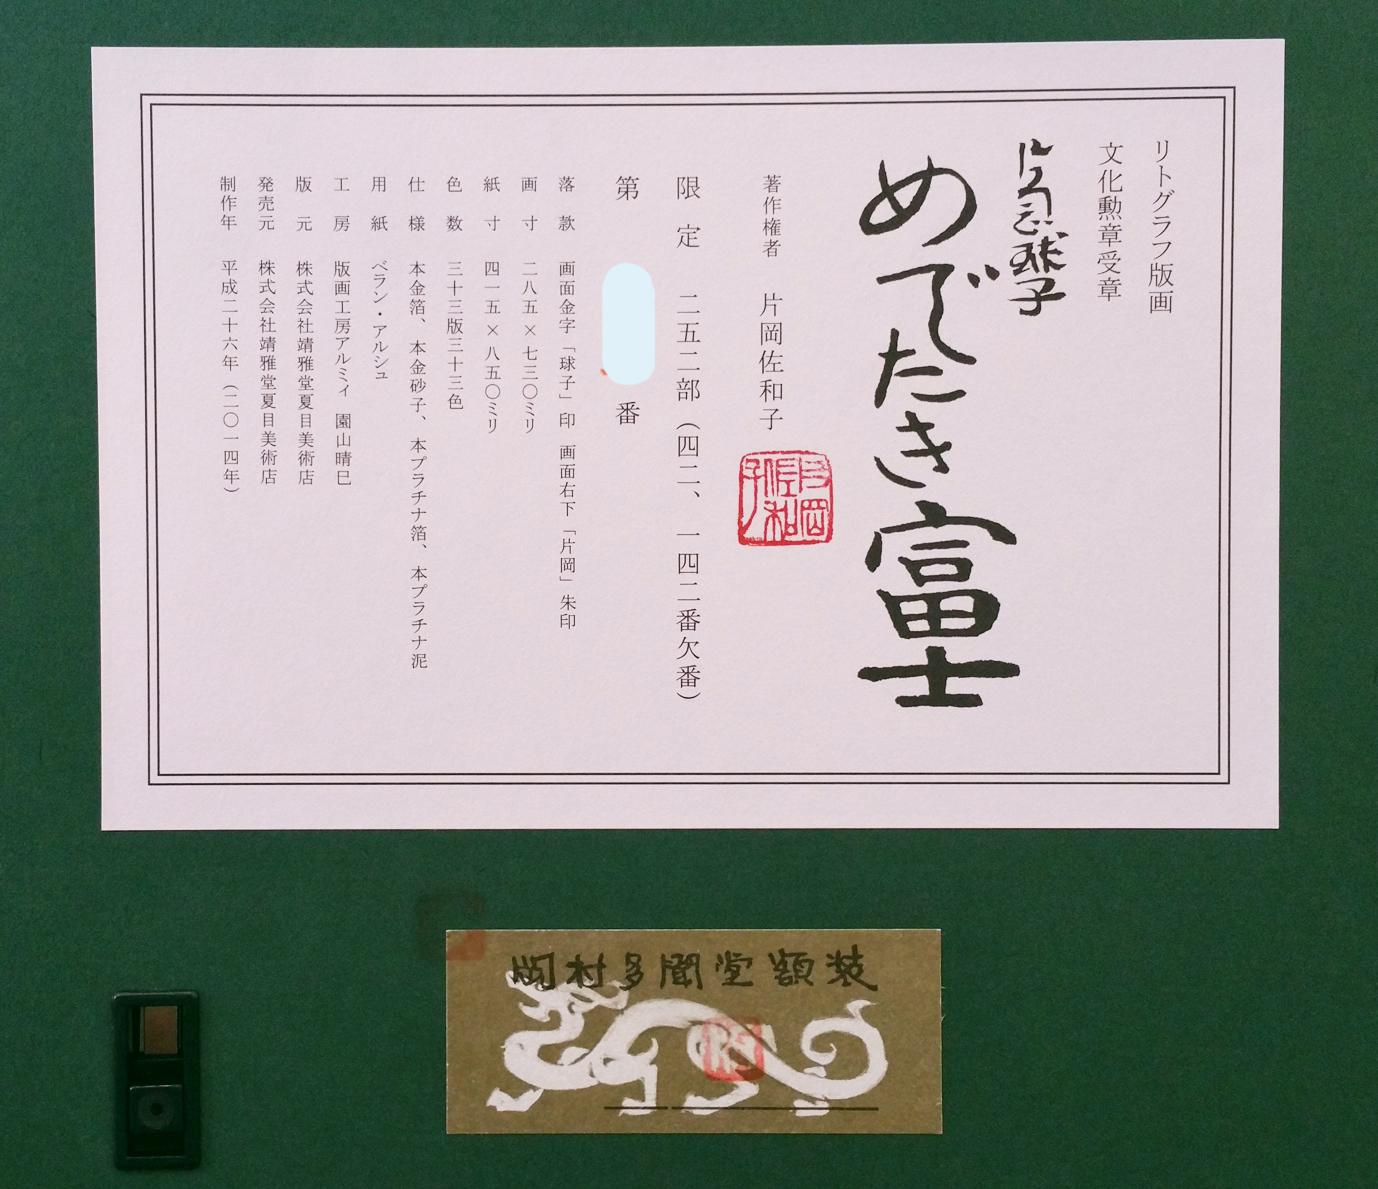 リトグラフ版画
文化勲章受章
片岡球子
めでたき富士
著作権者 片岡佐和子
片岡佐和子
限定 二五二部（四二、一四二番欠番）
第 番
落款 画面金字「球子」印 画面右下「片岡」朱印
画寸 二八五×七三〇ミリ
紙寸 四一五×八五〇ミリ
色数 三十三版三十三色
仕様 本金箔、本金砂子、本プラチナ箔、本プラチナ泥
用紙 ベラン・アルシュ
工房 版画工房アルミィ 園山晴巳
版元 株式会社靖雅堂夏目美術店
発売元 株式会社靖雅堂夏目美術店
制作年 平成二十六年（二〇一四年）
岡村多聞堂額装